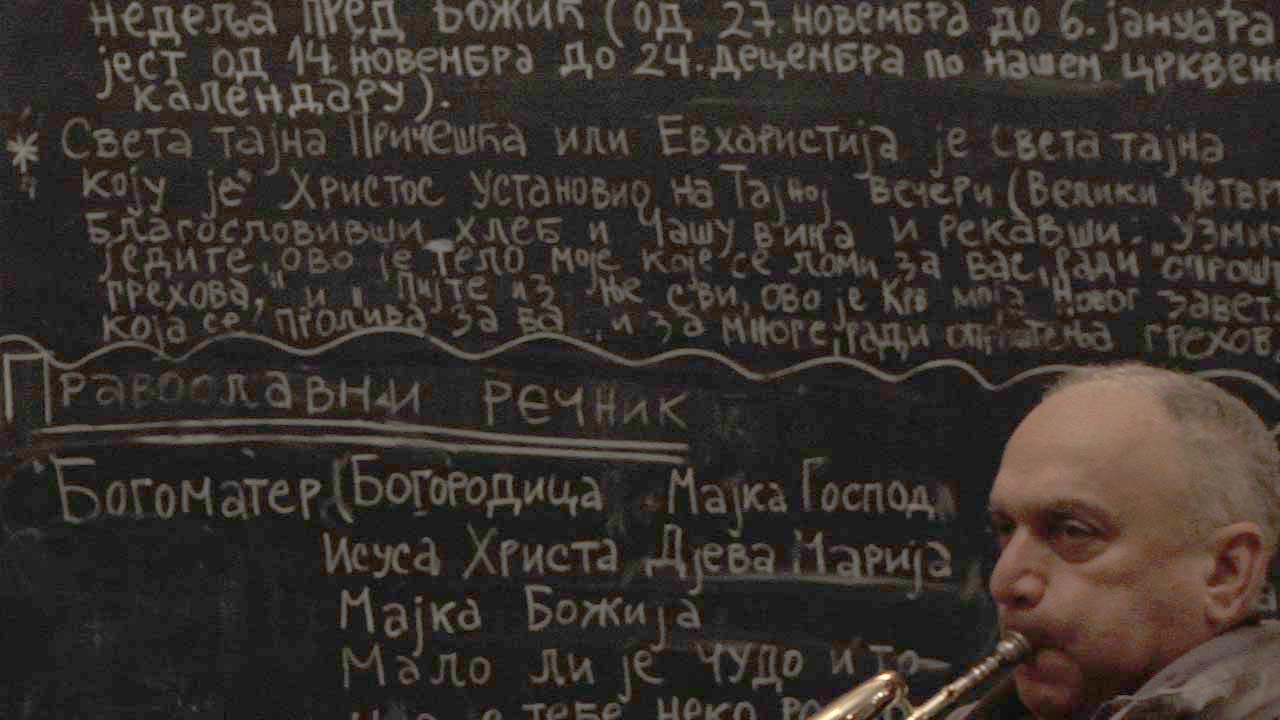 недеља пред Божић (од 27. новембра до 6. јануара
јест од 14. новембра до 24. децембра по нашем
календару).
* Света тајна Причешћа или Евхаристија је Света тајна
коју је Христос установио на Тајној вечери (Велики
благословивши хлеб и чашу вина и рекавши: "
једите, ово је тело моје које се ломи за вас, ради
грехова," и "Пијте из ње сви, ово је Крв моја Новог
која се пролива за ва и за многе, ради грехов
Православни речник
Богоматер (Богородица Мајка Господ
Исуса Христа Дјева Марија
Мајка Божија
Мало ли је чудо и то
тебе неко